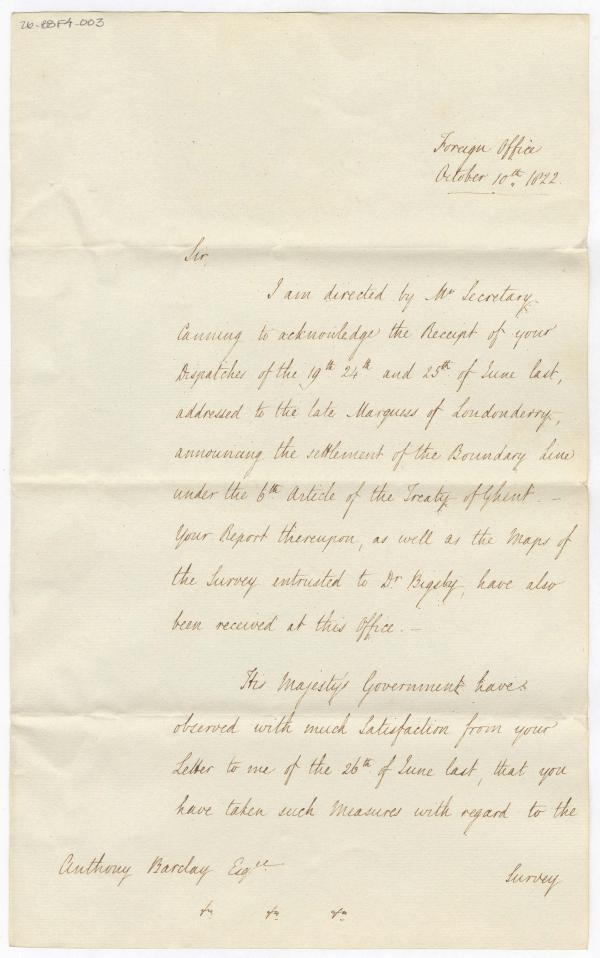 26-BBF4-003
Foreign Office
October 10th 1822.
Sir,
I am directed by Mr Secretary
Canning to acknowledge the Receipt of your
Dispatches of the 19th 24th and 25th of June last,
addressed to the late Marquess of Londonderry,
announcing the settlement of the Boundary Line
under the 6th Article of the Treaty of Ghent. —
Your Report thereupon, as well as the Maps of
the Survey entrusted to Dr Bigsby, have also
been received at this Office. —
His Majesty's Government have
observed with much Satisfaction from your
Letter to me of the 26th of June last, that you
have taken such Measures with regard to the
Anthony Barclay Esqre
Survey
&c &c &c